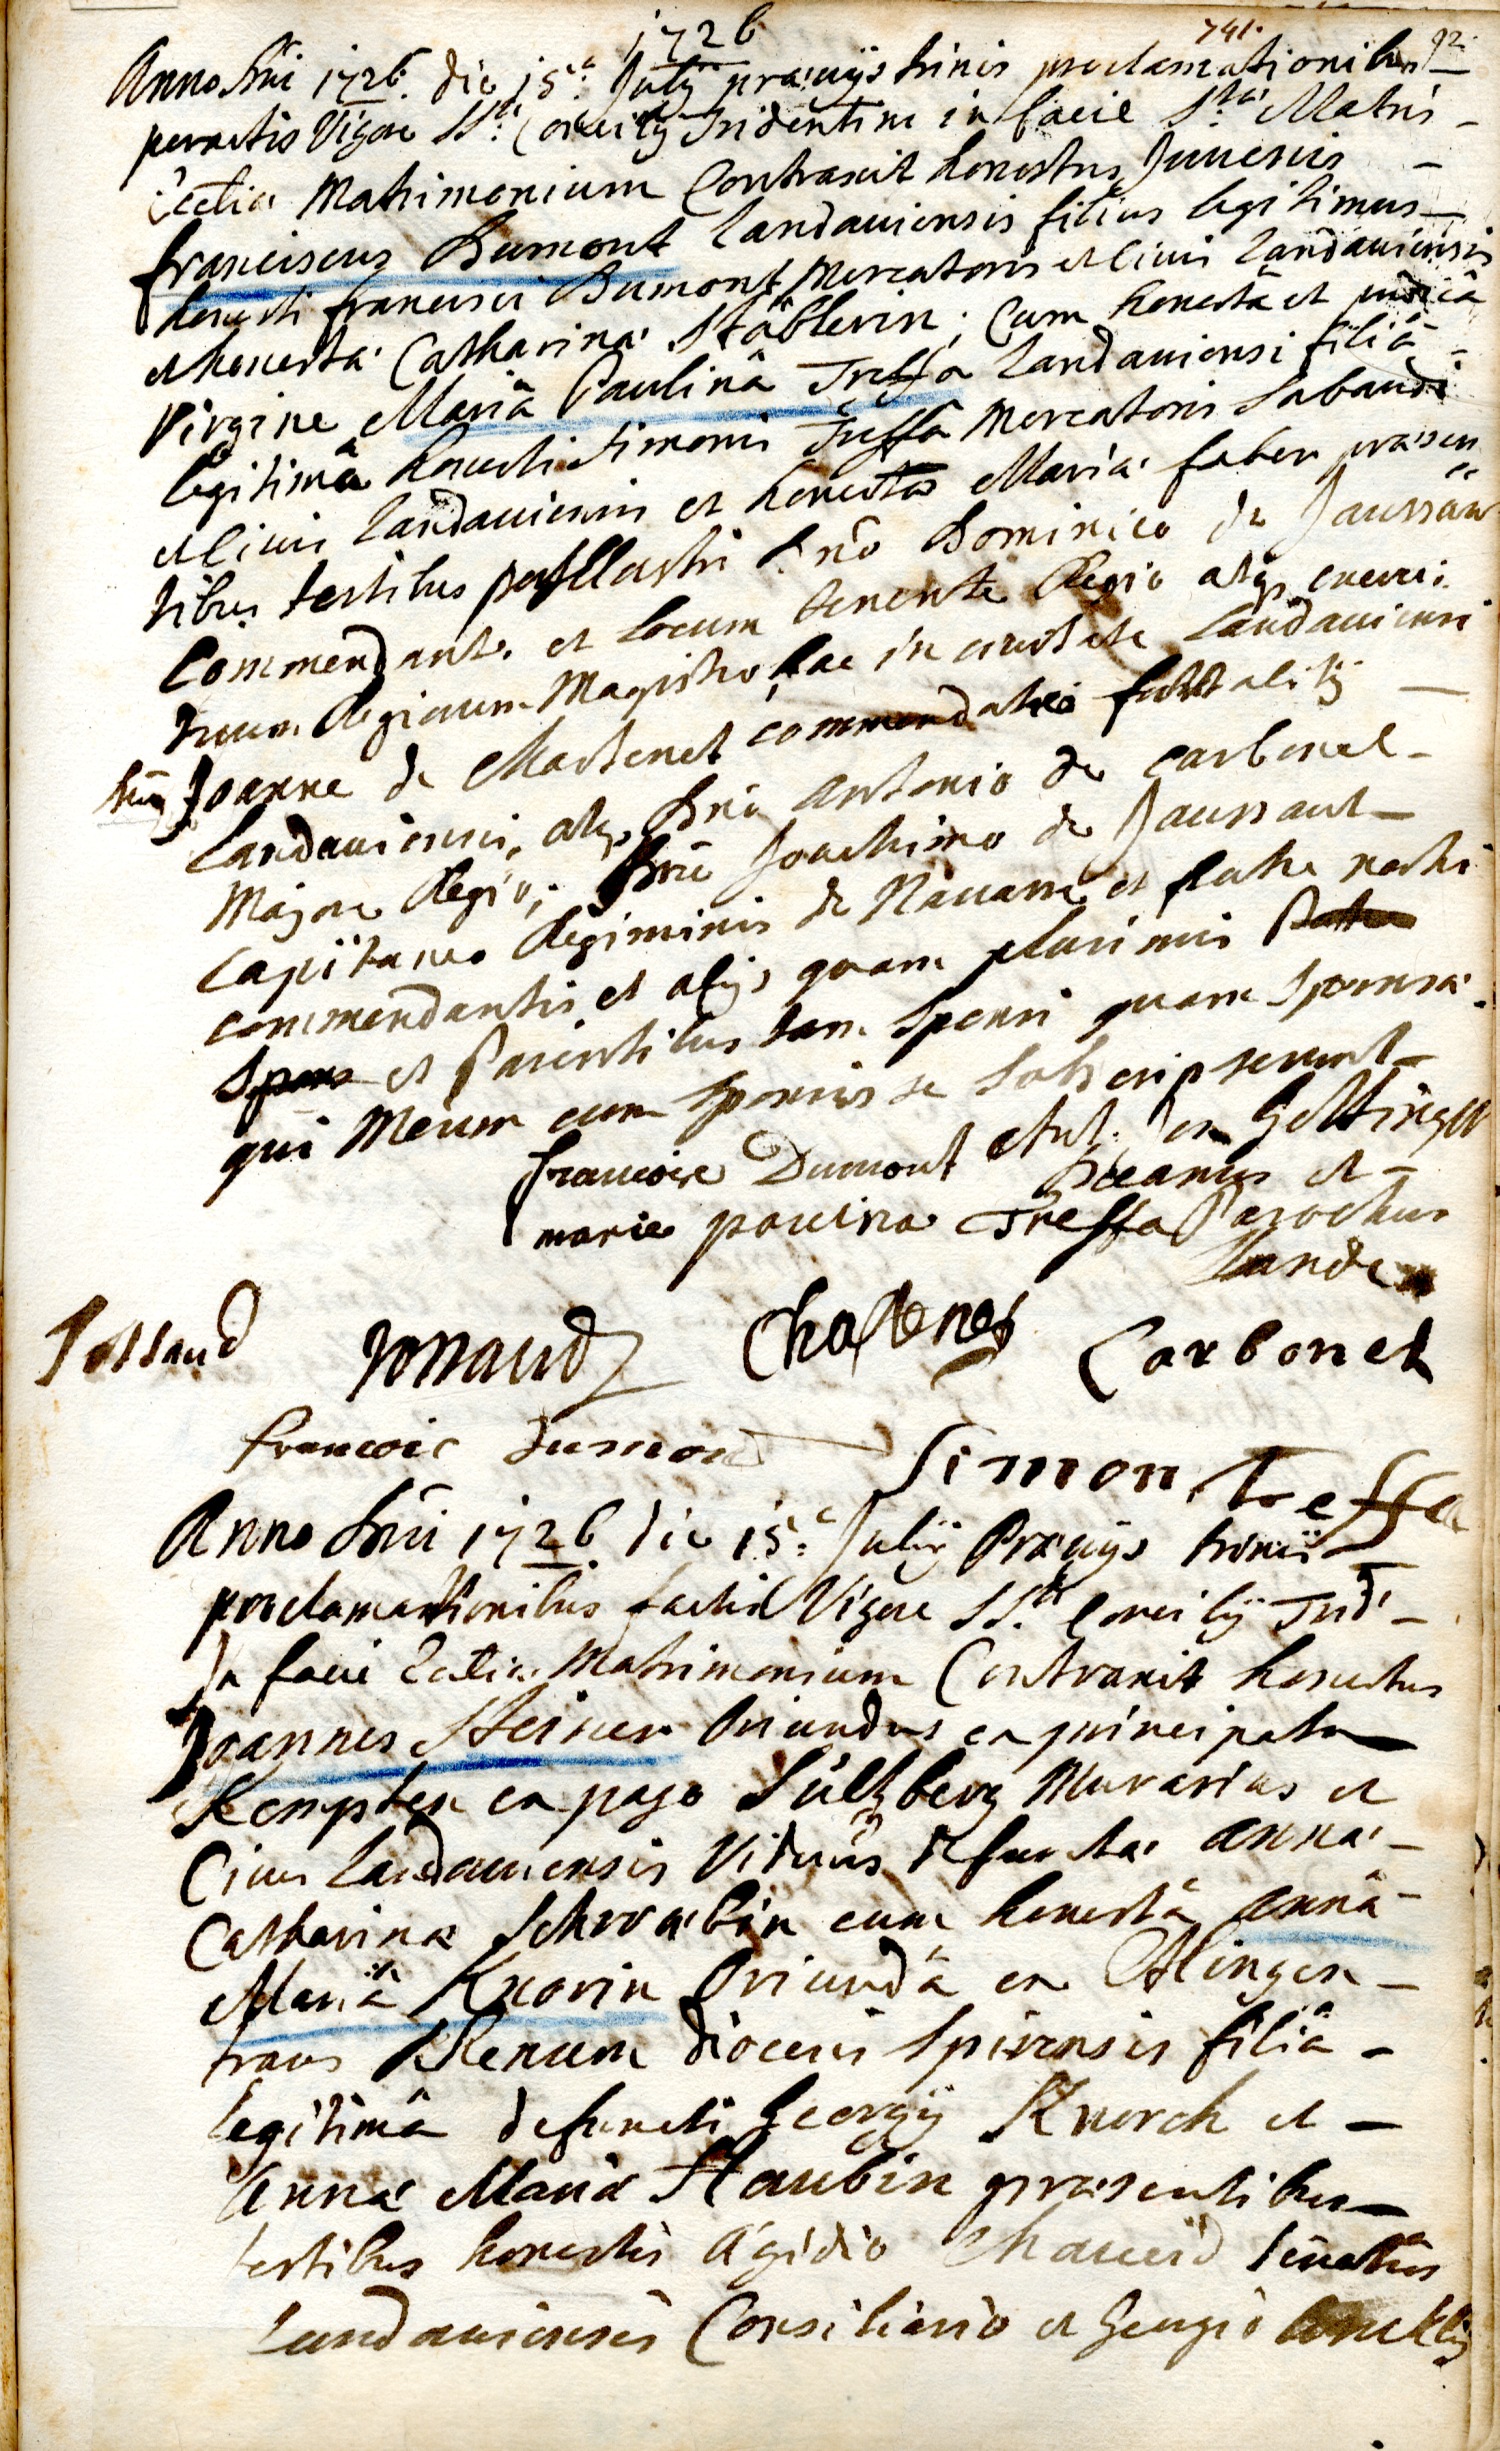 1726
741. 92.
Anno Dni 1726 die 15.a July præviis trinis proclamationibus
peractis Vigore SS.ti Concilij Tridentini in facie S.tæ Matris
Ecclīæ Matrimonium Contraxit honestus Juvenis
franciscus Dumont Landaviensis filius legitimus
honesti francisci Dumont Mercatoris et civis Landaviensis
et honestæ Catharinæ Stäblerin; Cum honestâ et pudicâ
Virgine Mariâ Paulinâ Treffa Landaviensi filiâ
legitimâ honesti Simonis Treffa Mercatoris Sabaudi
et civis Landaviensis et honestæ Mariæ faber præsen
tibus testibus Illustri Dnō Dominico de Jaussau
Commendante et Locum tenente Regio atq. exerci
tuum Regiorum Magistro hac in civitate Landaviensi
Joanne de Chastenet commendatore fortalitij
Landaviensis, atq. Dnō Antonio de Carbonel
Majore Regio; Dnō Joachimo de Jaussaut
Capitaneo Regiminis de Navarre et fratre nostri
commendantis et alijs quam plurimis
et Parentibus tam Sponsi quam Sponsæ
qui Mecum cum Sponsis se Subscripserunt
francoise Dumont Ant. Gettinger
Decanus et
marie paulina Treffa Parochus
Landa
Jossaud Jossaud Chastenet Carbonel
francois dumon Simon Treffa
Anno Dni 1726 die 15.a Julij Præviis trinis
proclamationibus factis Vigore SS.ti Concilij Trid
In facie Ecclīæ Matrimonium Contraxit honestus
Joannes Steiner Oriundus ex principatu
Kempten ex pago Sültzberg Murarius et
Civis Landaviensis Viduus defunctæ Annæ
Catharinæ Schwäbin cum honestâ Annâ
Mariâ Knorin Oriundâ ex Mingen
trans Rhenum diocesis Spirensis filiâ
legitimâ defuncti Georgij Knorch et
Annæ Mariæ Staubin præsentibus
testibus honestis Ägidio Senatus
Landaviensis Consiliario et Georgio